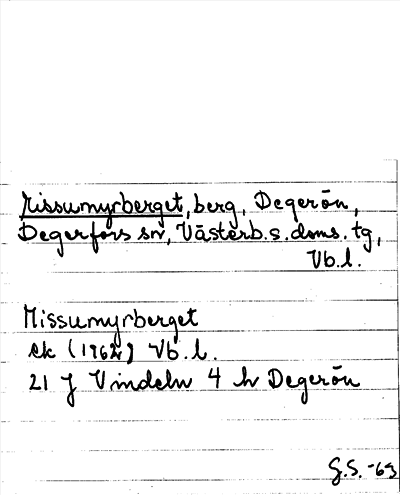 Missumyrberget, berg, Degerön,
Degerfors sn, Västerb.s.doms.tg,
Vb.l.
Missumyrberget
ek (1962) Vb.l.
21 J Vindeln 4 h Degerön
G.S.-69